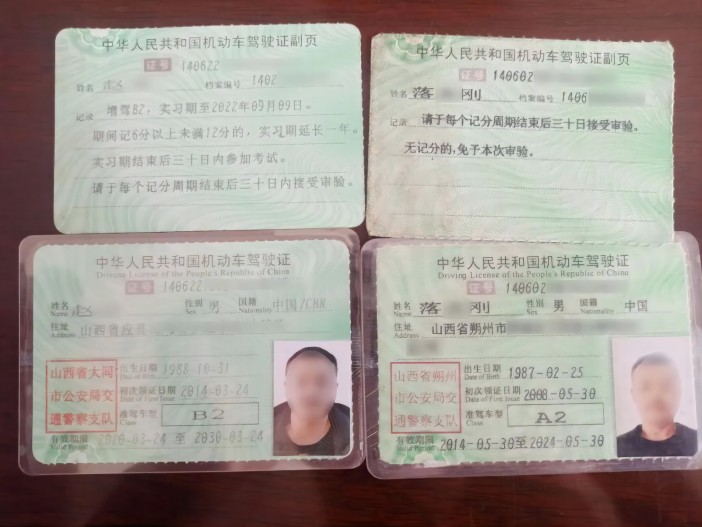 中华人民共和国机动车驾驶证副页
证号 140622
姓名 赵 档案编号 1402
记录 增驾B2,实习期至2022年09月09日。
期间记6分以上未满12分的,实习期延长一年。
实习期结束后三十日内参加考试。
请于每个记分周期结束后三十日内接受审验。
中华人民共和国机动车驾驶证副页
证号 140602
姓名 落 刚 档案编号 1406
记录 请于每个记分周期结束后三十日接受审验。
无记分的,免予本次审验。
中华人民共和国机动车驾驶证
Driving License of the People's Republic of China
证号 140622
姓名 Name 赵 性别 Sex 男 国籍 Nationality 中国/CHN
住址 Address 山西省应县
山西省大同
市公安局交
通警察支队
出生日期 Date of Birth 1988-10-31
初次领证日期 Date of First Issue 2014-03-24
准驾车型 Class B2
有效期限 Valid Period 2020-03-24 至 2030-03-24
中华人民共和国机动车驾驶证
Driving License of the People's Republic of China
证号 140602
姓名 Name 落 刚 性别 Sex 男 国籍 Nationality 中国
住址 Address 山西省朔州市
山西省朔州
市公安局交
通警察支队
出生日期 Date of Birth 1987-02-25
初次领证日期 Date of First Issue 2008-05-30
准驾车型 Class A2
有效期限 Valid Period 2014-05-30至2024-05-30